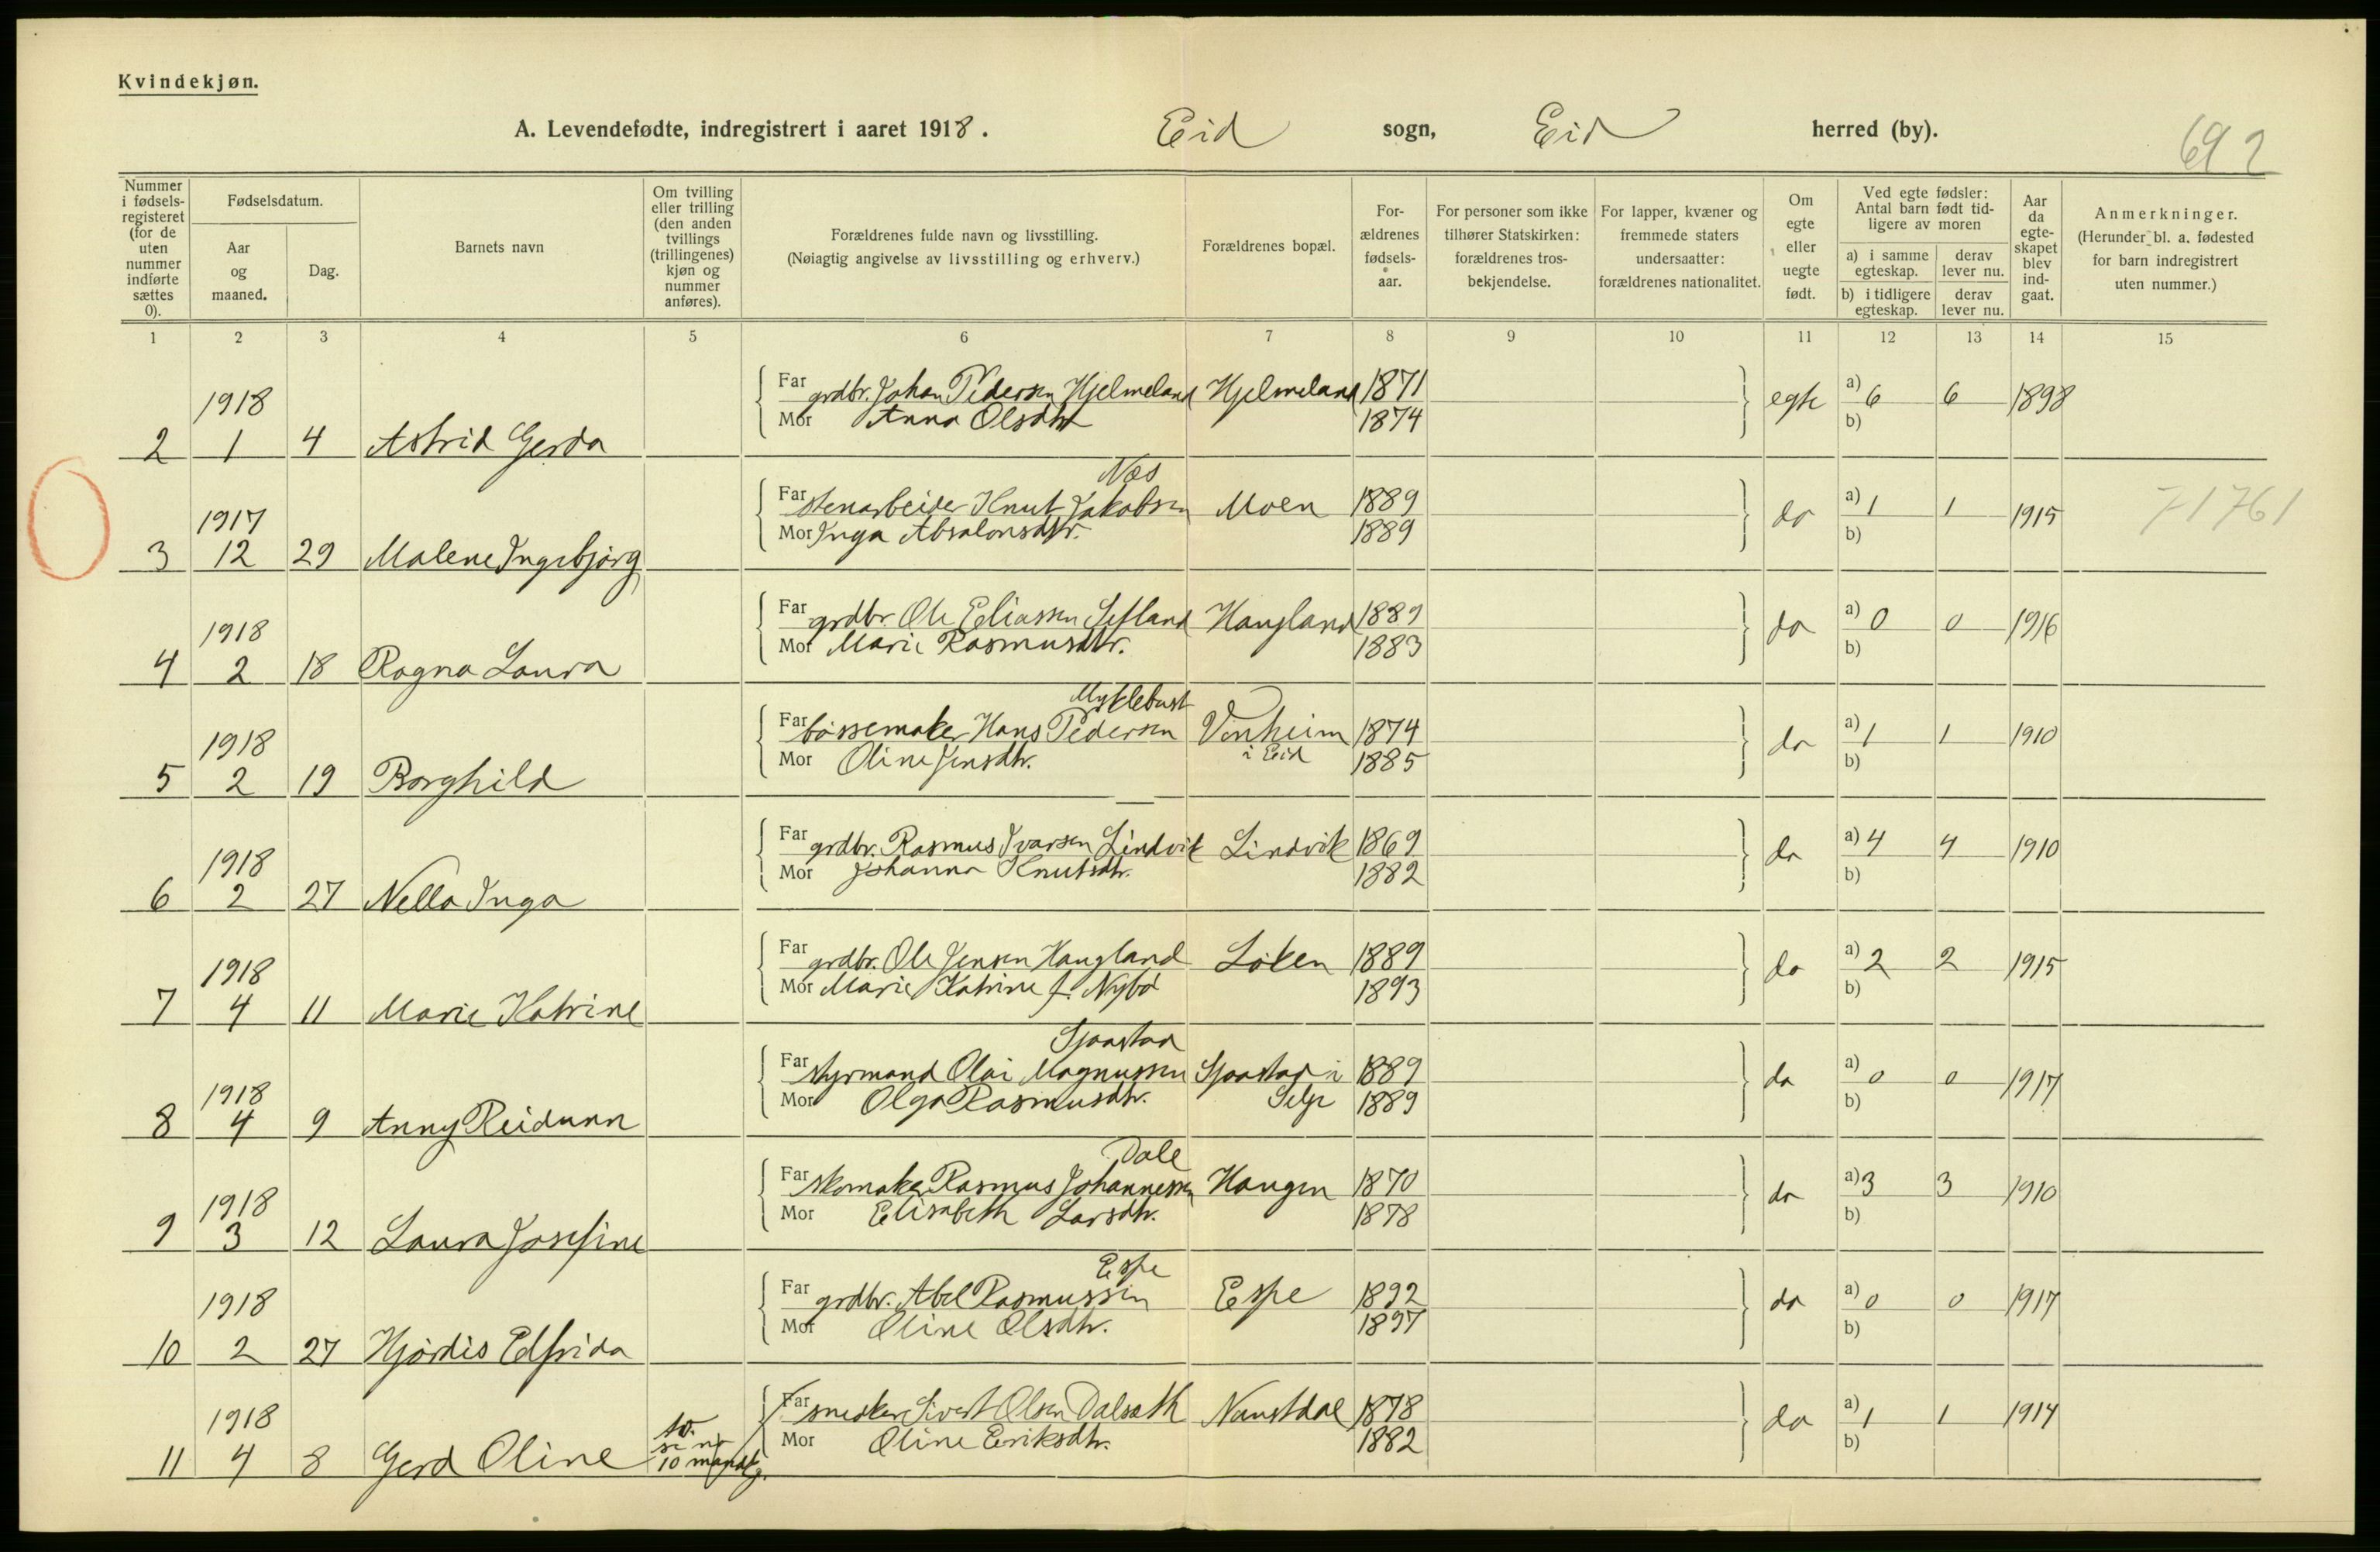 Kvindekjøn.
A. Levendefødte, indregistrert i aaret 1918. Eid sogn, Eid herred (by).
692
Nummer i fødsels-registeret (for de uten nummer indførte sættes 0).
Fødselsdatum.
Aar og maaned.
Dag.
Barnets navn
Om tvilling eller trilling (den anden tvillings (trillingenes) kjøn og nummer anføres).
Forældrenes fulde navn og livsstilling.
(Nøiagtig angivelse av livsstilling og erhverv.)
Forældrenes bopæl.
For-ældrenes fødsels-aar.
For personer som ikke tilhører Statskirken: forældrenes tros-bekjendelse.
For lapper, kvæner og fremmede staters undersaatter: forældrenes nationalitet.
Om egte eller uegte født.
Ved egte fødsler: Antal barn født tid-ligere av moren
a) i samme egteskap.
derav lever nu.
b) i tidligere egteskap.
derav lever nu.
Aar da egte-skapet blev ind-gaat.
Anmerkninger.
(Herunder bl. a. fødested for barn indregistrert uten nummer.)
1 2 3 4 5 6 7 8 9 10 11 12 13 14 15
1918
Far grdbr. Johan Pedersen Hjelmeland Hjelmeland 1871 egte a) 6 6 1898
Mor Anna Olsdtr 1874 b)
2 1 4 Astrid Gerda
Nes
1917
Far stenarbeider Knut Jakobsen Moen 1889 do a) 1 1 1915 71761
Mor Inga Absalonsdtr. 1889 b)
3 12 29 Malene Ingebjørg
1918
Far grdbr. Ole Eliassen Haugland 1889 do a) 0 0 1916
Mor Marie Rasmusdtr. 1883 b)
4 2 18 Ragna Laura
Myklebust
1918
Far bössemaker Hans Pedersen Vonheim 1874 do a) 1 1 1910
Mor Oline Jensdtr. i Eid 1885 b)
5 2 19 Borghild
1918
Far grdbr. Rasmus Ivarsen Lindvik Lindvik 1869 do a) 4 4 1910
Mor Johanna Knutsdtr. 1882 b)
6 2 27 Nella Inga
1918
Far grdbr. Ole Jensen Haugland Löken 1889 do a) 2 2 1915
Mor Marie Katrine f. Nybö 1893 b)
7 4 11 Marie Katrine
Sjaastad
1918
Far styrmand Olai Magnussen Sjaastad i 1889 do a) 0 0 1917
Mor Olga Rasmusdtr. Selje 1889 b)
8 4 9 Anny Reidunn
Dale
1918
Far skomaker Rasmus Johannessen Haugen 1870 do a) 3 3 1910
Mor Elisabeth Larsdtr. 1878 b)
9 3 12 Laura Josefine
Espe
1918
Far grdbr. Abel Rasmussen Espe 1892 do a) 0 0 1917
Mor Oline Olsdtr. 1897 b)
10 2 27 Hjördis Edfrida
1918
Far snedker Sivert Olsen Dalseth Naustdal 1878 do a) 1 1 1914
Mor Oline Eriksdtr. 1882 b)
tv.
se nr
11 4 8 Gerd Oline 10 mandkj.